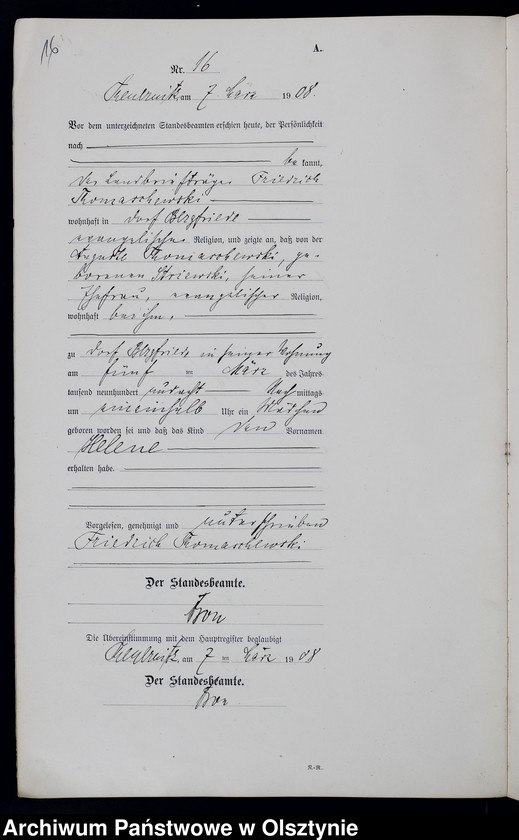 16
A.
Nr. 16
am 7 März 1908.
Vor dem unterzeichneten Standesbeamten erschien heute, der Persönlichkeit
nach
be kannt,
der Landbriefträger Friedrich
Thomaschewski
wohnhaft in Dorf Bergfriede
evangelischer Religion, und zeigte an, daß von der
Auguste Thomaschewski, ge-
borenen, seiner
Ehefrau, evangelischer Religion,
wohnhaft bei ihm,
zu Dorf Bergfriede in seiner Wohnung
am fünf ten März des Jahres
tausend neunhundert und acht Nach mittags
um ein einhalb Uhr ein Mädchen
geboren worden sei und daß das Kind den Vornamen
Helene
erhalten habe.
Vorgelesen, genehmigt und unterschrieben
Friedrich Thomaschewski
Der Standesbeamte.
Die Übereinstimmung mit dem Hauptregister beglaubigt
am 7 ten März 1908
Der Standesbeamte.
Archiwum Państwowe w Olsztynie